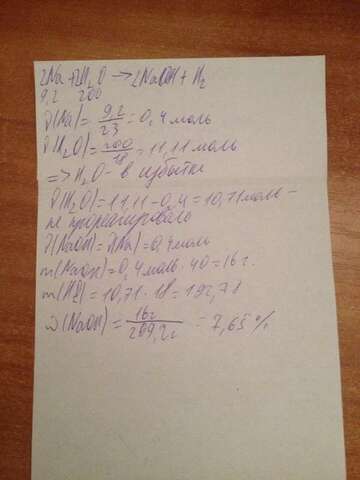 2Na + 2H₂O → 2NaOH + H₂
9,2 200
ν(Na) = 9,2/23 = 0,4 моль
ν(H₂O) = 200/18 = 11,11 моль
=> H₂O - в избытке
ν(H₂O) = 11,11 - 0,4 = 10,71 моль -
не прореагировало
ν(NaOH) = ν(Na) = 0,4 моль
m(NaOH) = 0,4 моль · 40 = 16 г.
m(H2) = 10,71 · 18 = 192,78
ω(NaOH) = 16г/209,2г = 7,65 %